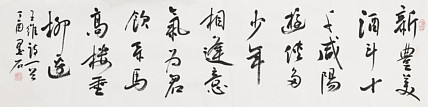 新豐美
酒斗十
千咸陽
遊俠多
少年
相逢意
氣為君
飲系馬
高樓垂
柳邊
王維詩一首
丁酉